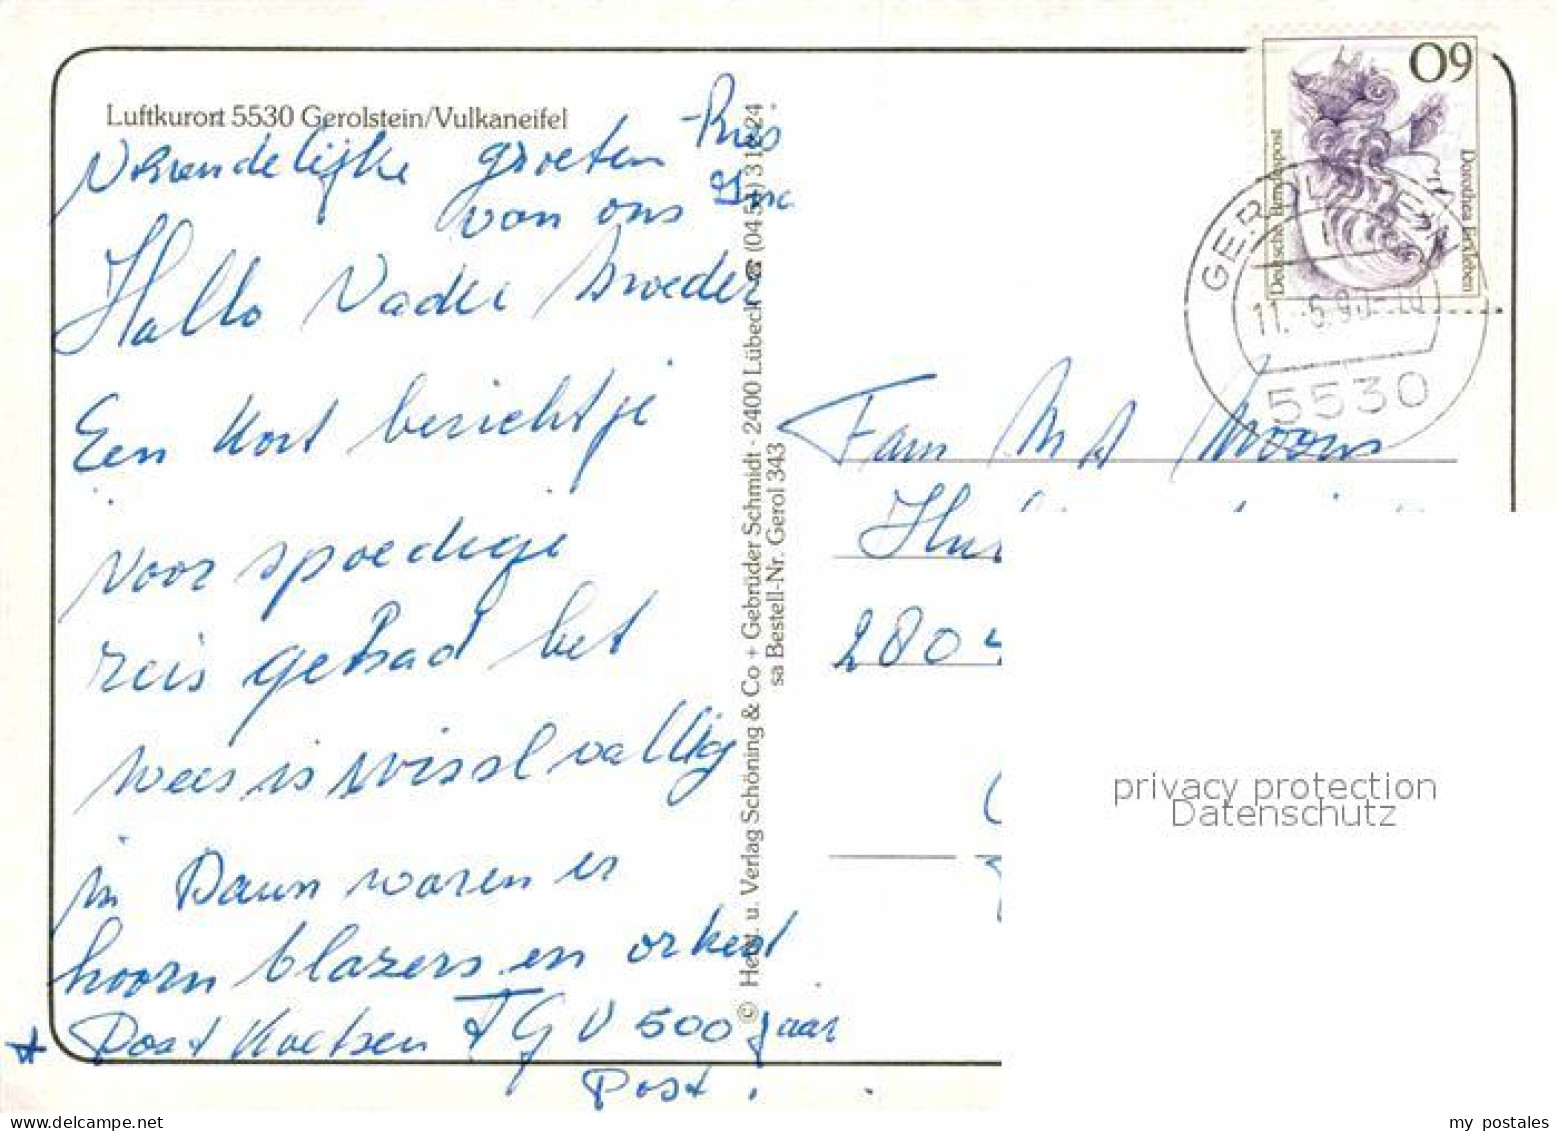 Luftkurort 5530 Gerolstein/Vulkaneifel
Vriendelijke groeten
van ons
Hallo Vader broeder
Een kort berichtje
voor spoedige
reis gehad het
weer is wisselvallig
in Daun waren er
hoorn blazers en orkest
Post Koetsen TGV 500 jaar
Post.
u. Verlag Schöning & Co + Gebrüder Schmidt · 2400 Lübeck ☎
sa Bestell-Nr. Gerol 343
60
Deutsche Bundespost
Dorothea Erxleben
GEROLSTEIN
5530
Fam
2804
privacy protection
Datenschutz
my postales